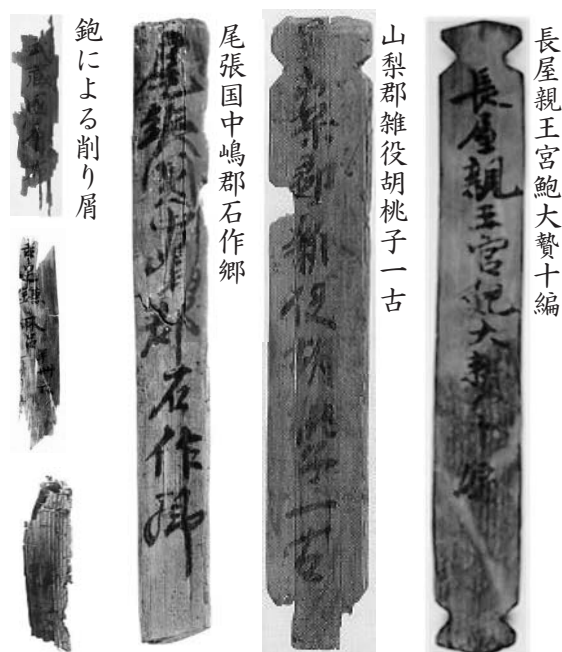 長屋親王宮鮑大贄十編
長屋親王宮鮑大贄十編
山梨郡雑役胡桃子一古
山梨郡雑役胡桃子一古
尾張国中嶋郡石作郷
尾張國中嶋郡石作郷
鉋による削り屑